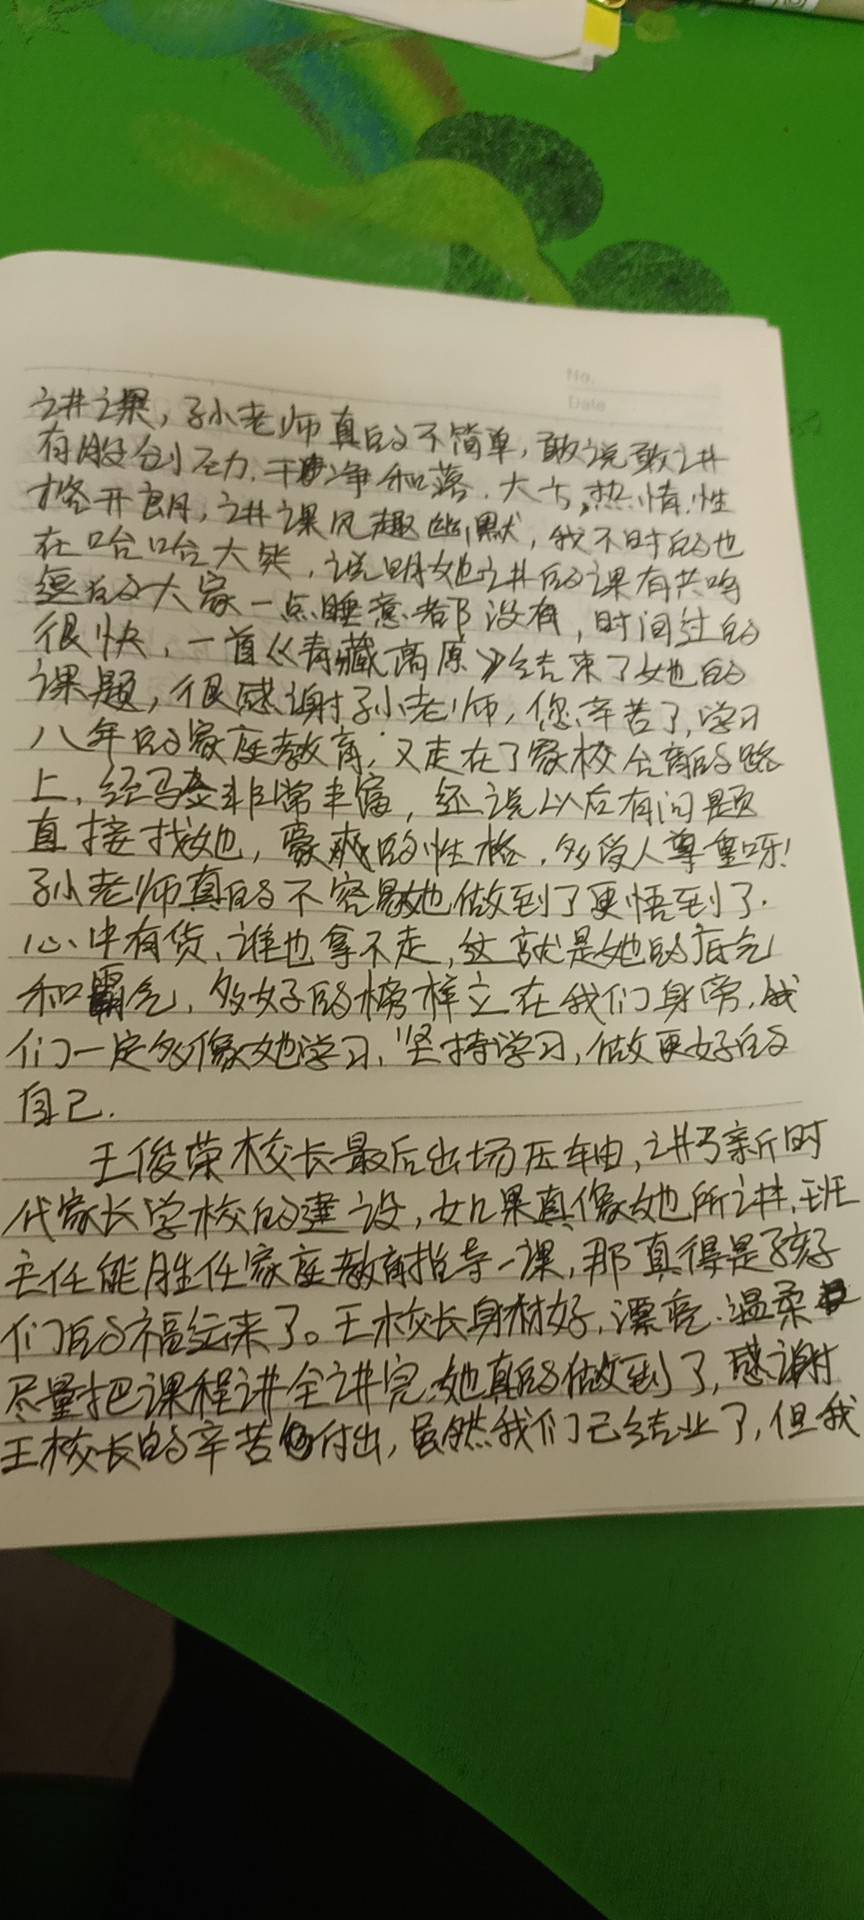 No.
Date
讲课，孙老师真的不简单，敢说敢讲
有股创劲，干净利落，大方，热情，性
格开朗，讲课风趣幽默，我不时的也
在哈哈大笑，说明她讲的课有共鸣
逗的大家一点睡意都没有，时间过的
很快，一首《青藏高原》结束了她的
课题，很感谢孙老师，您辛苦了，学习
八年的家庭教育，又走在了家校合育的路
上，经验非常丰富，还说以后有问题
直接找她，豪爽的性格，多受人尊重呀！
孙老师真的不容易她做到了更悟到了.
心中有货，谁也拿不走，这就是她的底气
和霸气，多好的榜样立在我们身旁，我
们一定多像她学习，坚持学习，做更好的
自己.
王俊荣校长最后出场压轴，讲了新时
代家长学校的建设，如果真像她所讲，班
主任能胜任家庭教育指导课，那真得是孩子
们的福运来了。王校长身材好，漂亮，温柔
尽量把课程讲全讲完，她真的做到了，感谢
王校长的辛苦付出，虽然我们已结业了，但我